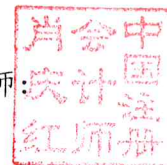 师:
中国注册
会计师
肖 红